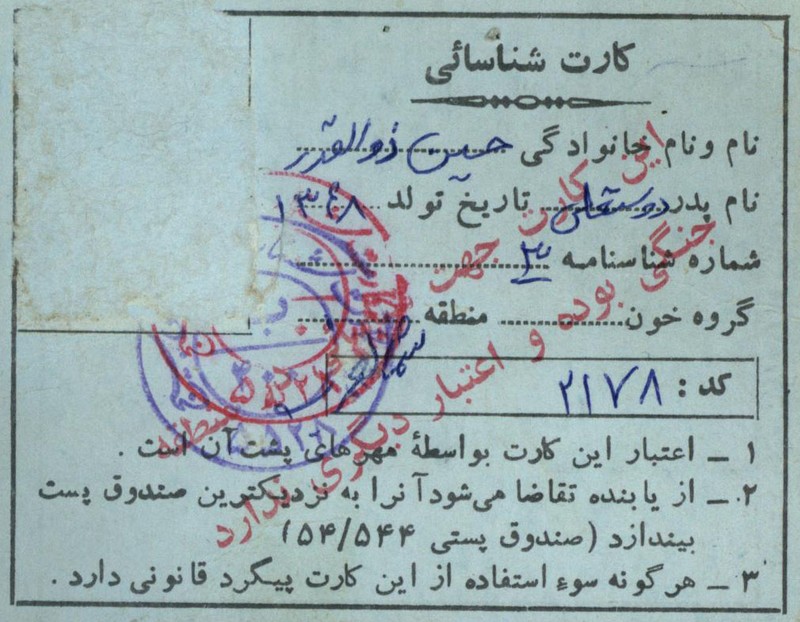 کارت شناسائی
نام و نام خانوادگی حسین ذوالقدر
نام پدر دوستعلی تاریخ تولد ۱۳۴۸
شماره شناسنامه ۳
گروه خون منطقه
کد : ۲۱۷۸
۱ ـ اعتبار این کارت بواسطهٔ مهرهای پشت آن است .
۲ ـ از یابنده تقاضا می‌شود آنرا به نزدیکترین صندوق پست
بیندازد (صندوق پستی ۵۴/۵۴۴)
۳ ـ هرگونه سوء استفاده از این کارت پیگرد قانونی دارد .
این کارت جهت
جنگی بوده و اعتبار دیگری ندارد